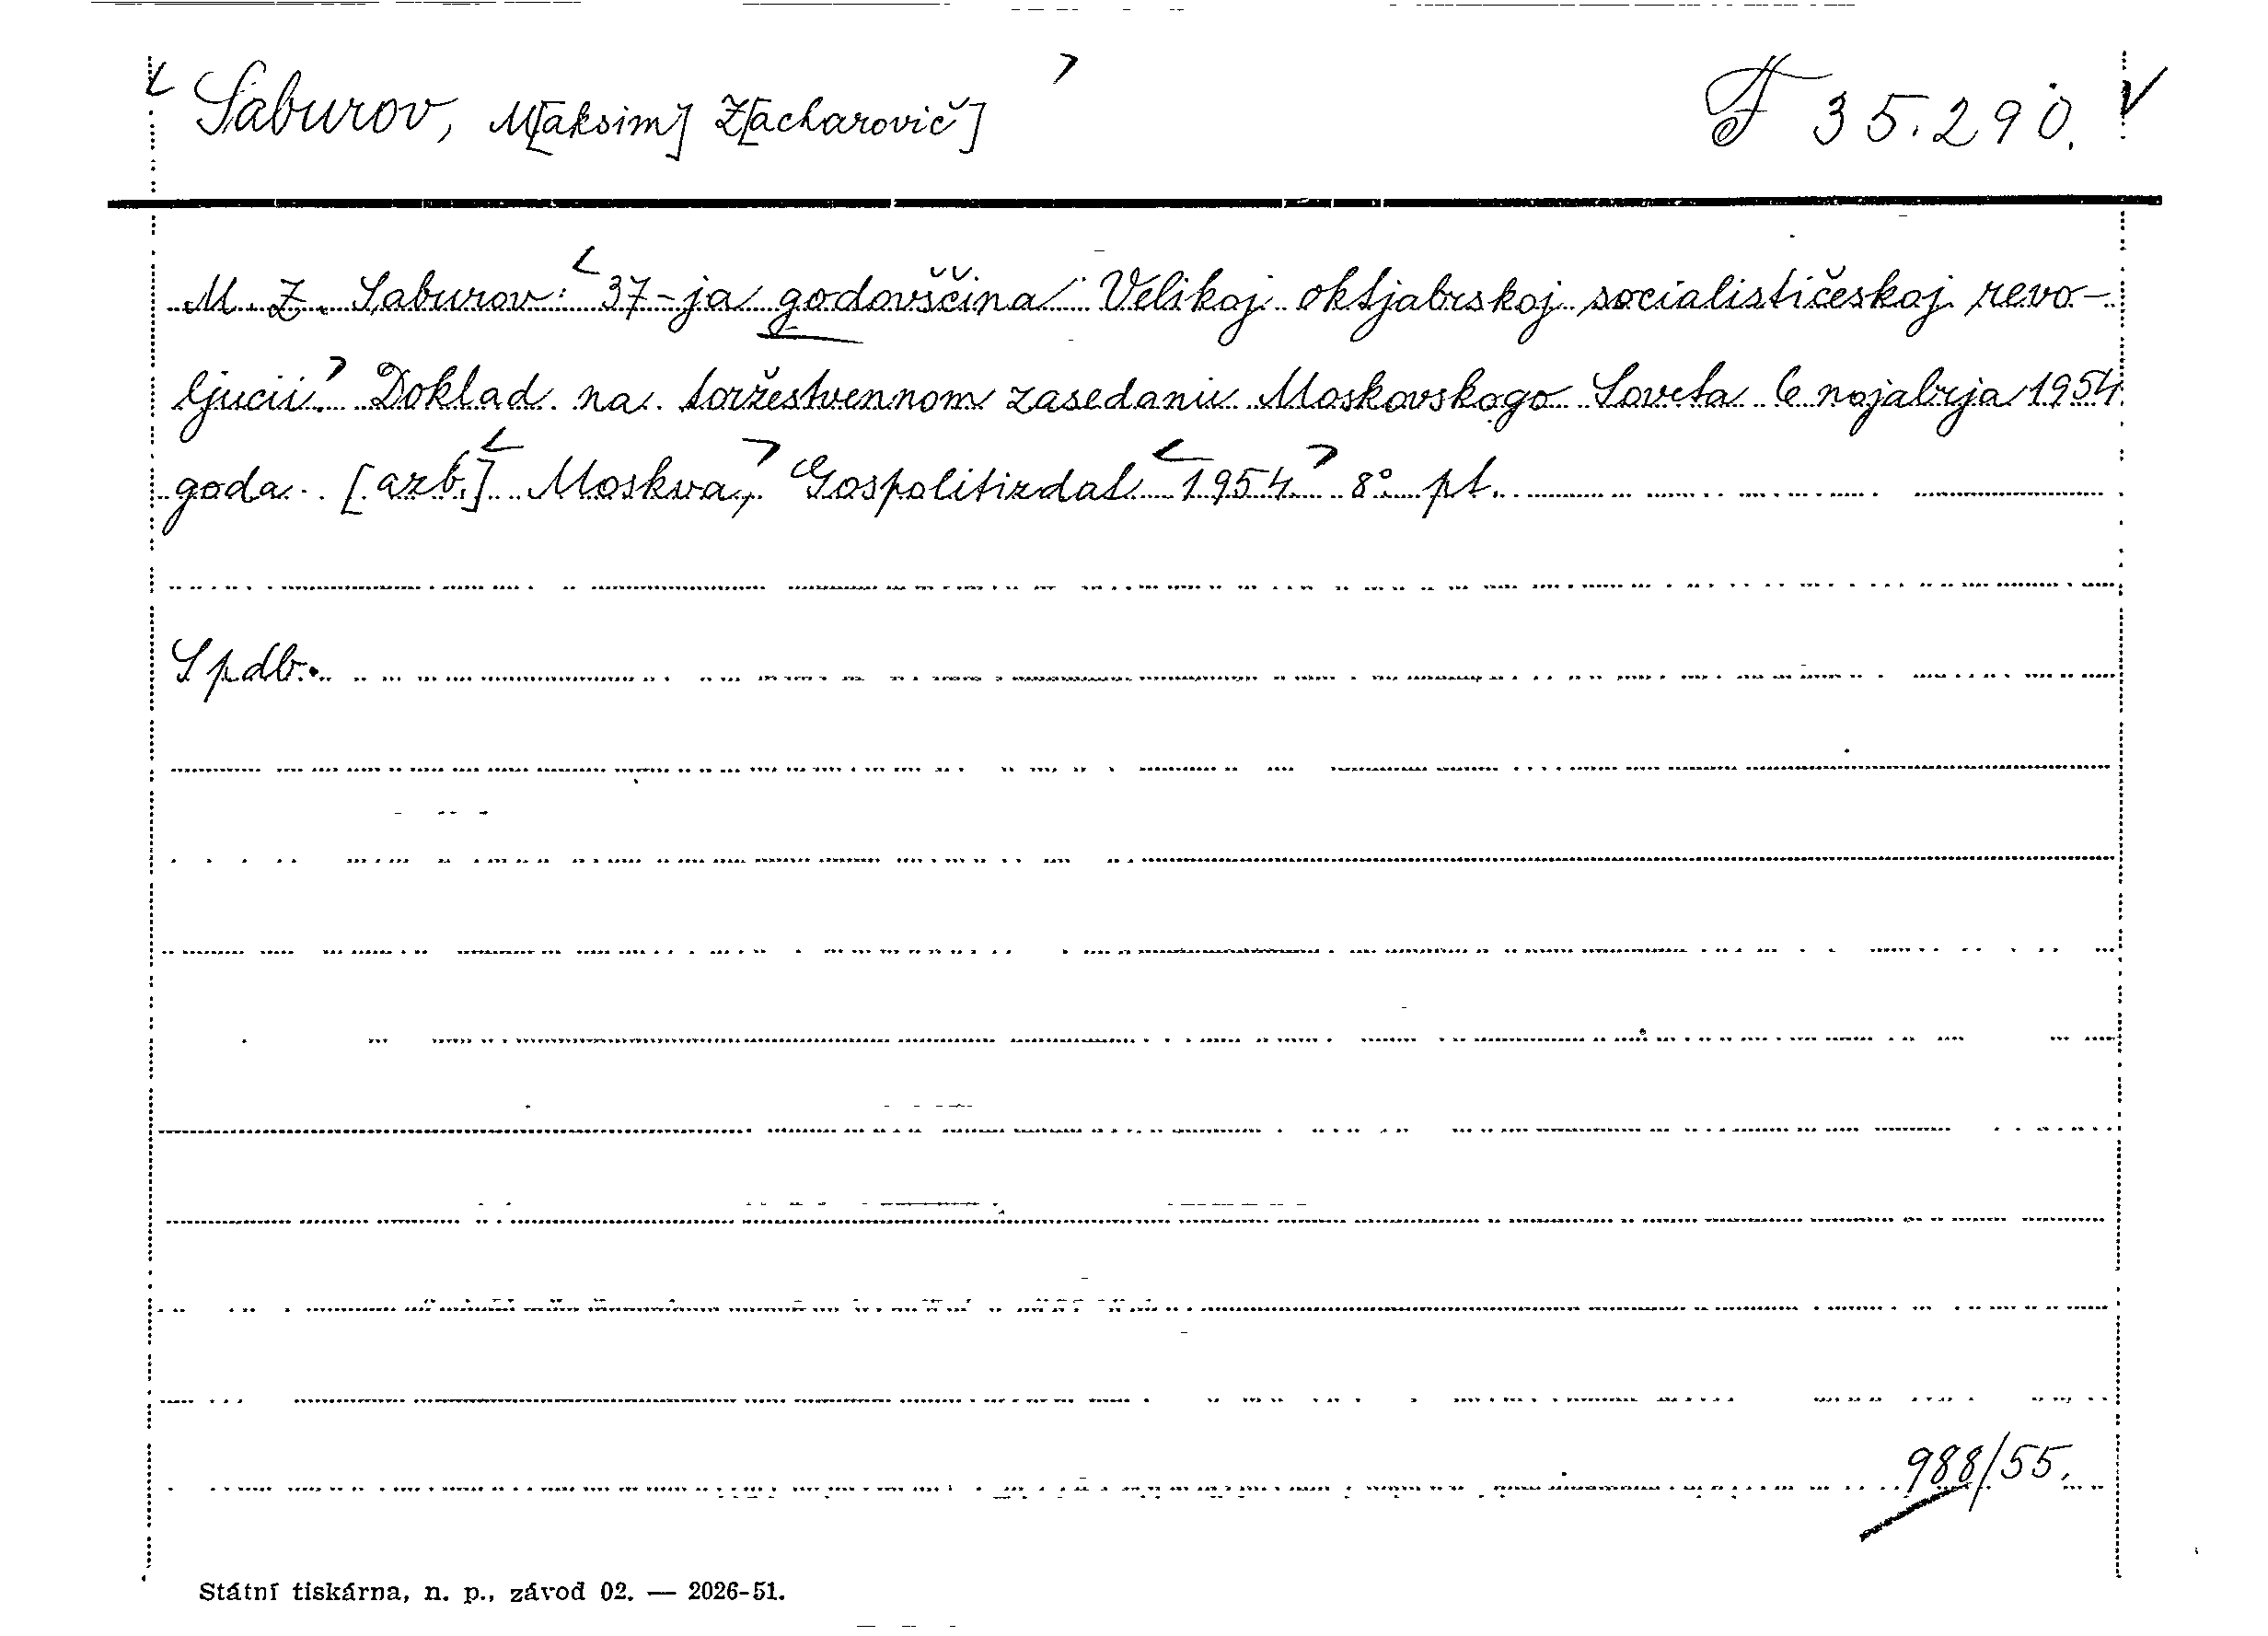 Saburov, M[aksim] Z[acharovič] F 35.290.
M. Z. Saburov: 37-ja godovščina Velikoj oktjabrskoj socialističeskoj revo-
ljucii. Doklad na toržestvennom zasedanii Moskovskogo Soveta 6 nojabrja 1954
goda. [azb.] Moskva, Gospolitizdat 1954. 8° pt.
S pdb.
988/55.
Státní tiskárna, n. p., závod 02. — 2026-51.